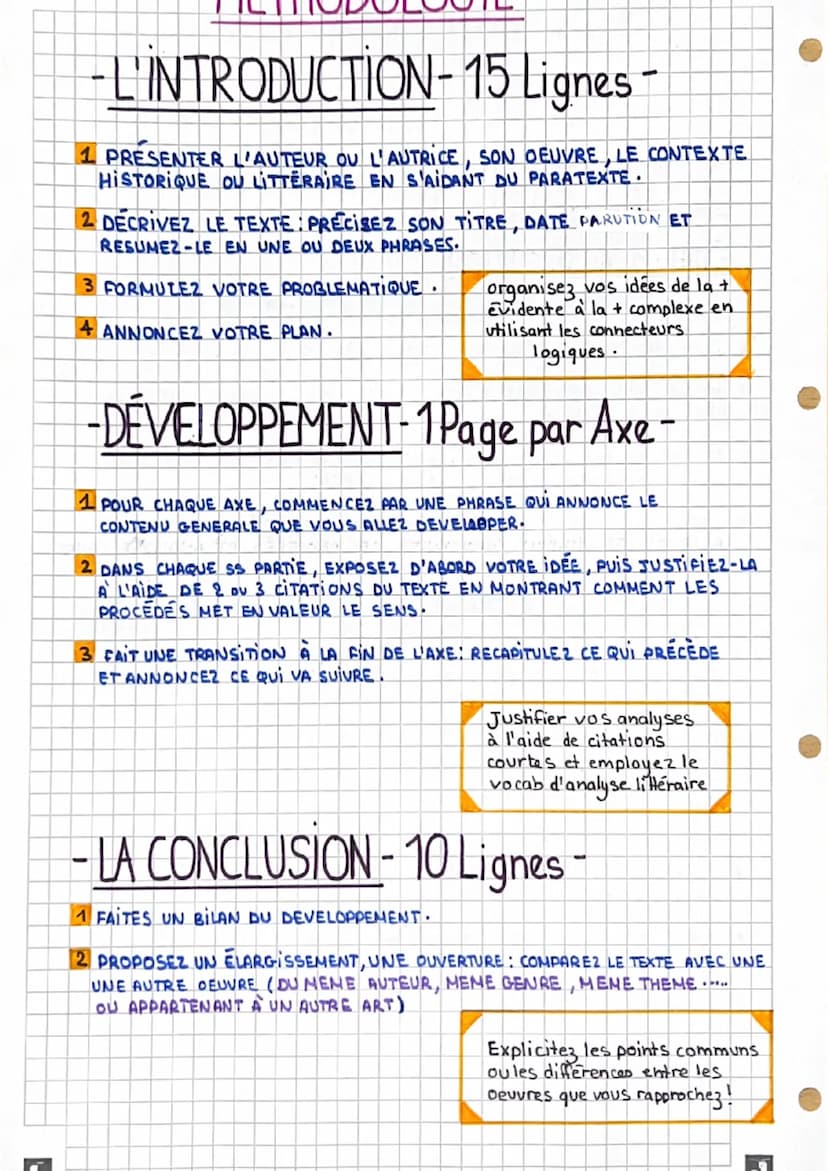 MÉTHODOLOGIE
-L'INTRODUCTION- 15 Lignes -
1 PRÉSENTER L'AUTEUR OU L'AUTRICE, SON OEUVRE, LE CONTEXTE
HISTORIQUE OU LITTÉRAIRE EN S'AIDANT DU PARATEXTE.
2 DÉCRIVEZ LE TEXTE : PRÉCISEZ SON TITRE, DATE PARUTION ET
RESUMEZ-LE EN UNE OU DEUX PHRASES.
3 FORMULEZ VOTRE PROBLEMATIQUE .
4 ANNONCEZ VOTRE PLAN.
organisez vos idées de la +
évidente à la + complexe en
utilisant les connecteurs
logiques.
-DÉVELOPPEMENT- 1 Page par Axe -
1 POUR CHAQUE AXE, COMMENCEZ PAR UNE PHRASE QUI ANNONCE LE
CONTENU GENERALE QUE VOUS ALLEZ DEVELOPER.
2 DANS CHAQUE SS PARTIE, EXPOSEZ D'ABORD VOTRE IDÉE, PUIS JUSTIFIEZ-LA
À L'AIDE DE 2 OU 3 CITATIONS DU TEXTE EN MONTRANT COMMENT LES
PROCÉDÉS MET EN VALEUR LE SENS.
3 FAIT UNE TRANSITION À LA FIN DE L'AXE: RECAPITULEZ CE QUI PRÉCÈDE
ET ANNONCEZ CE QUI VA SUIVRE.
Justifier vos analyses
à l'aide de citations
courtes et employez le
vocab d'analyse littéraire
- LA CONCLUSION - 10 Lignes -
1 FAITES UN BILAN DU DEVELOPPEMENT.
2 PROPOSEZ UN ÉLARGISSEMENT, UNE OUVERTURE : COMPAREZ LE TEXTE AVEC UNE
UNE AUTRE OEUVRE (DU MEME AUTEUR, MEME GENRE, MEME THEME .....
OU APPARTENANT À UN AUTRE ART)
Explicitez les points communs
ou les différences entre les
oeuvres que vous rapprochez!